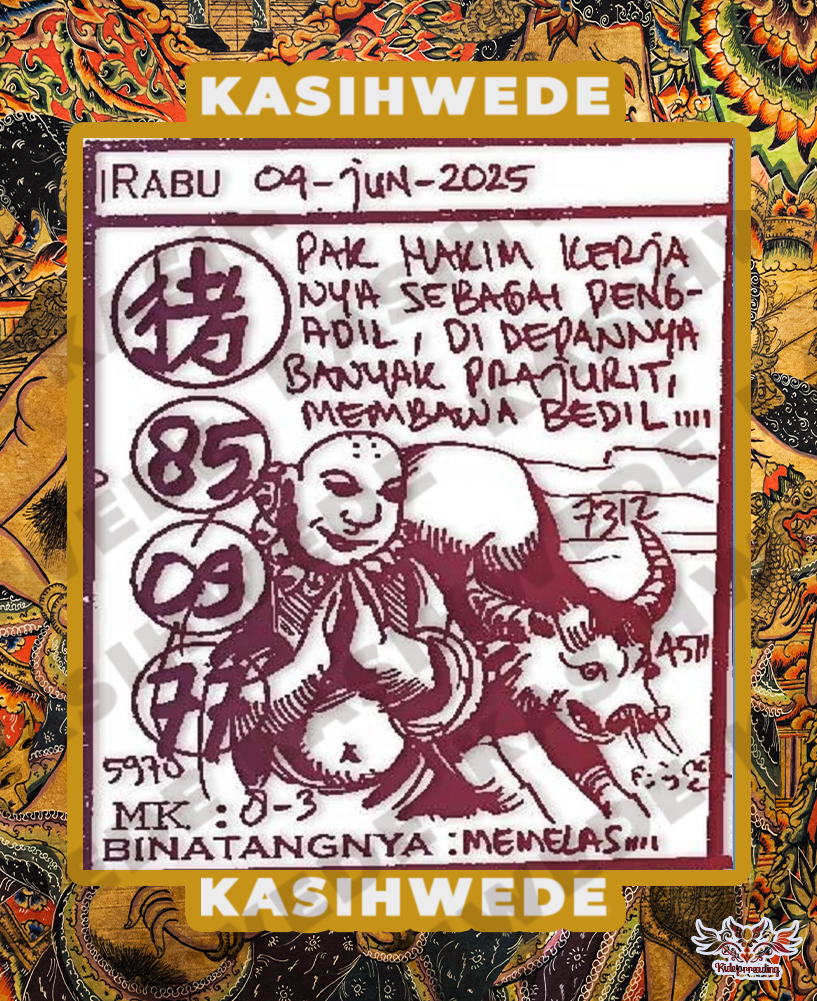 KASIHWEDE
RABU 04-JUN-2025
猪
PAK HAKIM KERJA
NYA SEBAGAI PENG-
ADIL, DI DEPANNYA
BANYAK PRAJURIT,
MEMBAWA BEDIL....
85
09
77
7312
4511
5970
MK : 0-3
BINATANGNYA : MEMELAS....
KASIHWEDE